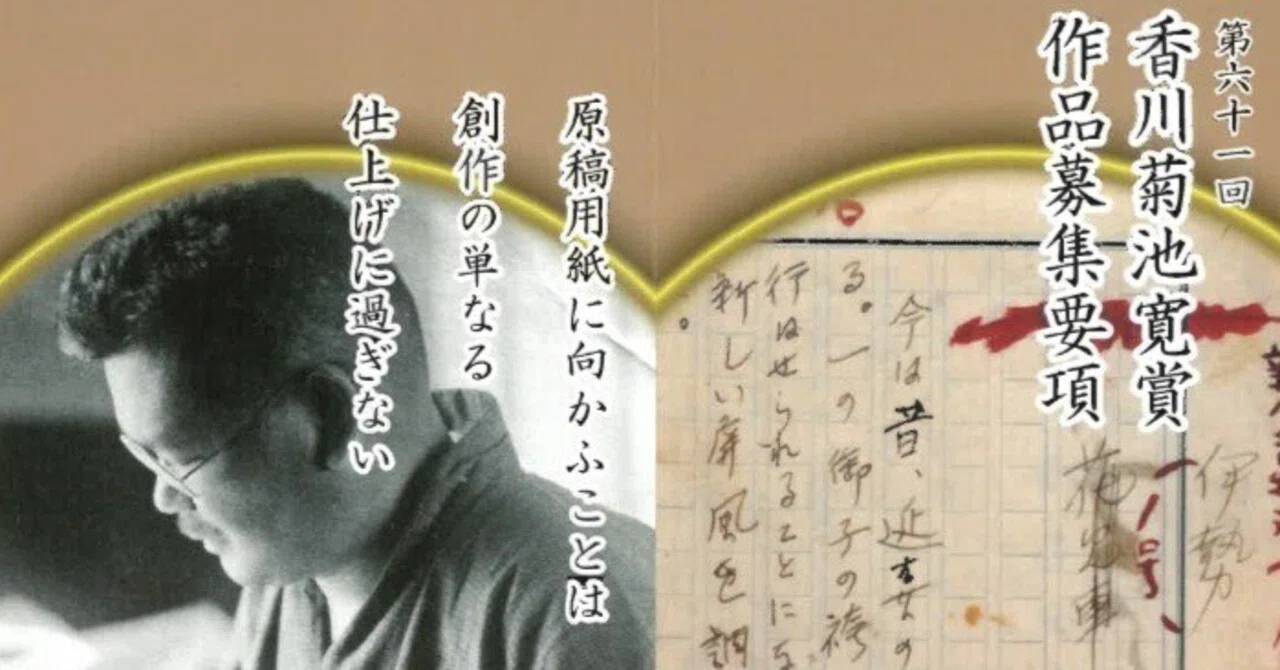 第六十一回
香川菊池寛賞
作品募集要項
伊勢
今は昔、延喜の
る。一の御子の袴
行はせられることにな
新しい屏風を調
。
原稿用紙に向かふことは
創作の単なる
仕上げに過ぎない